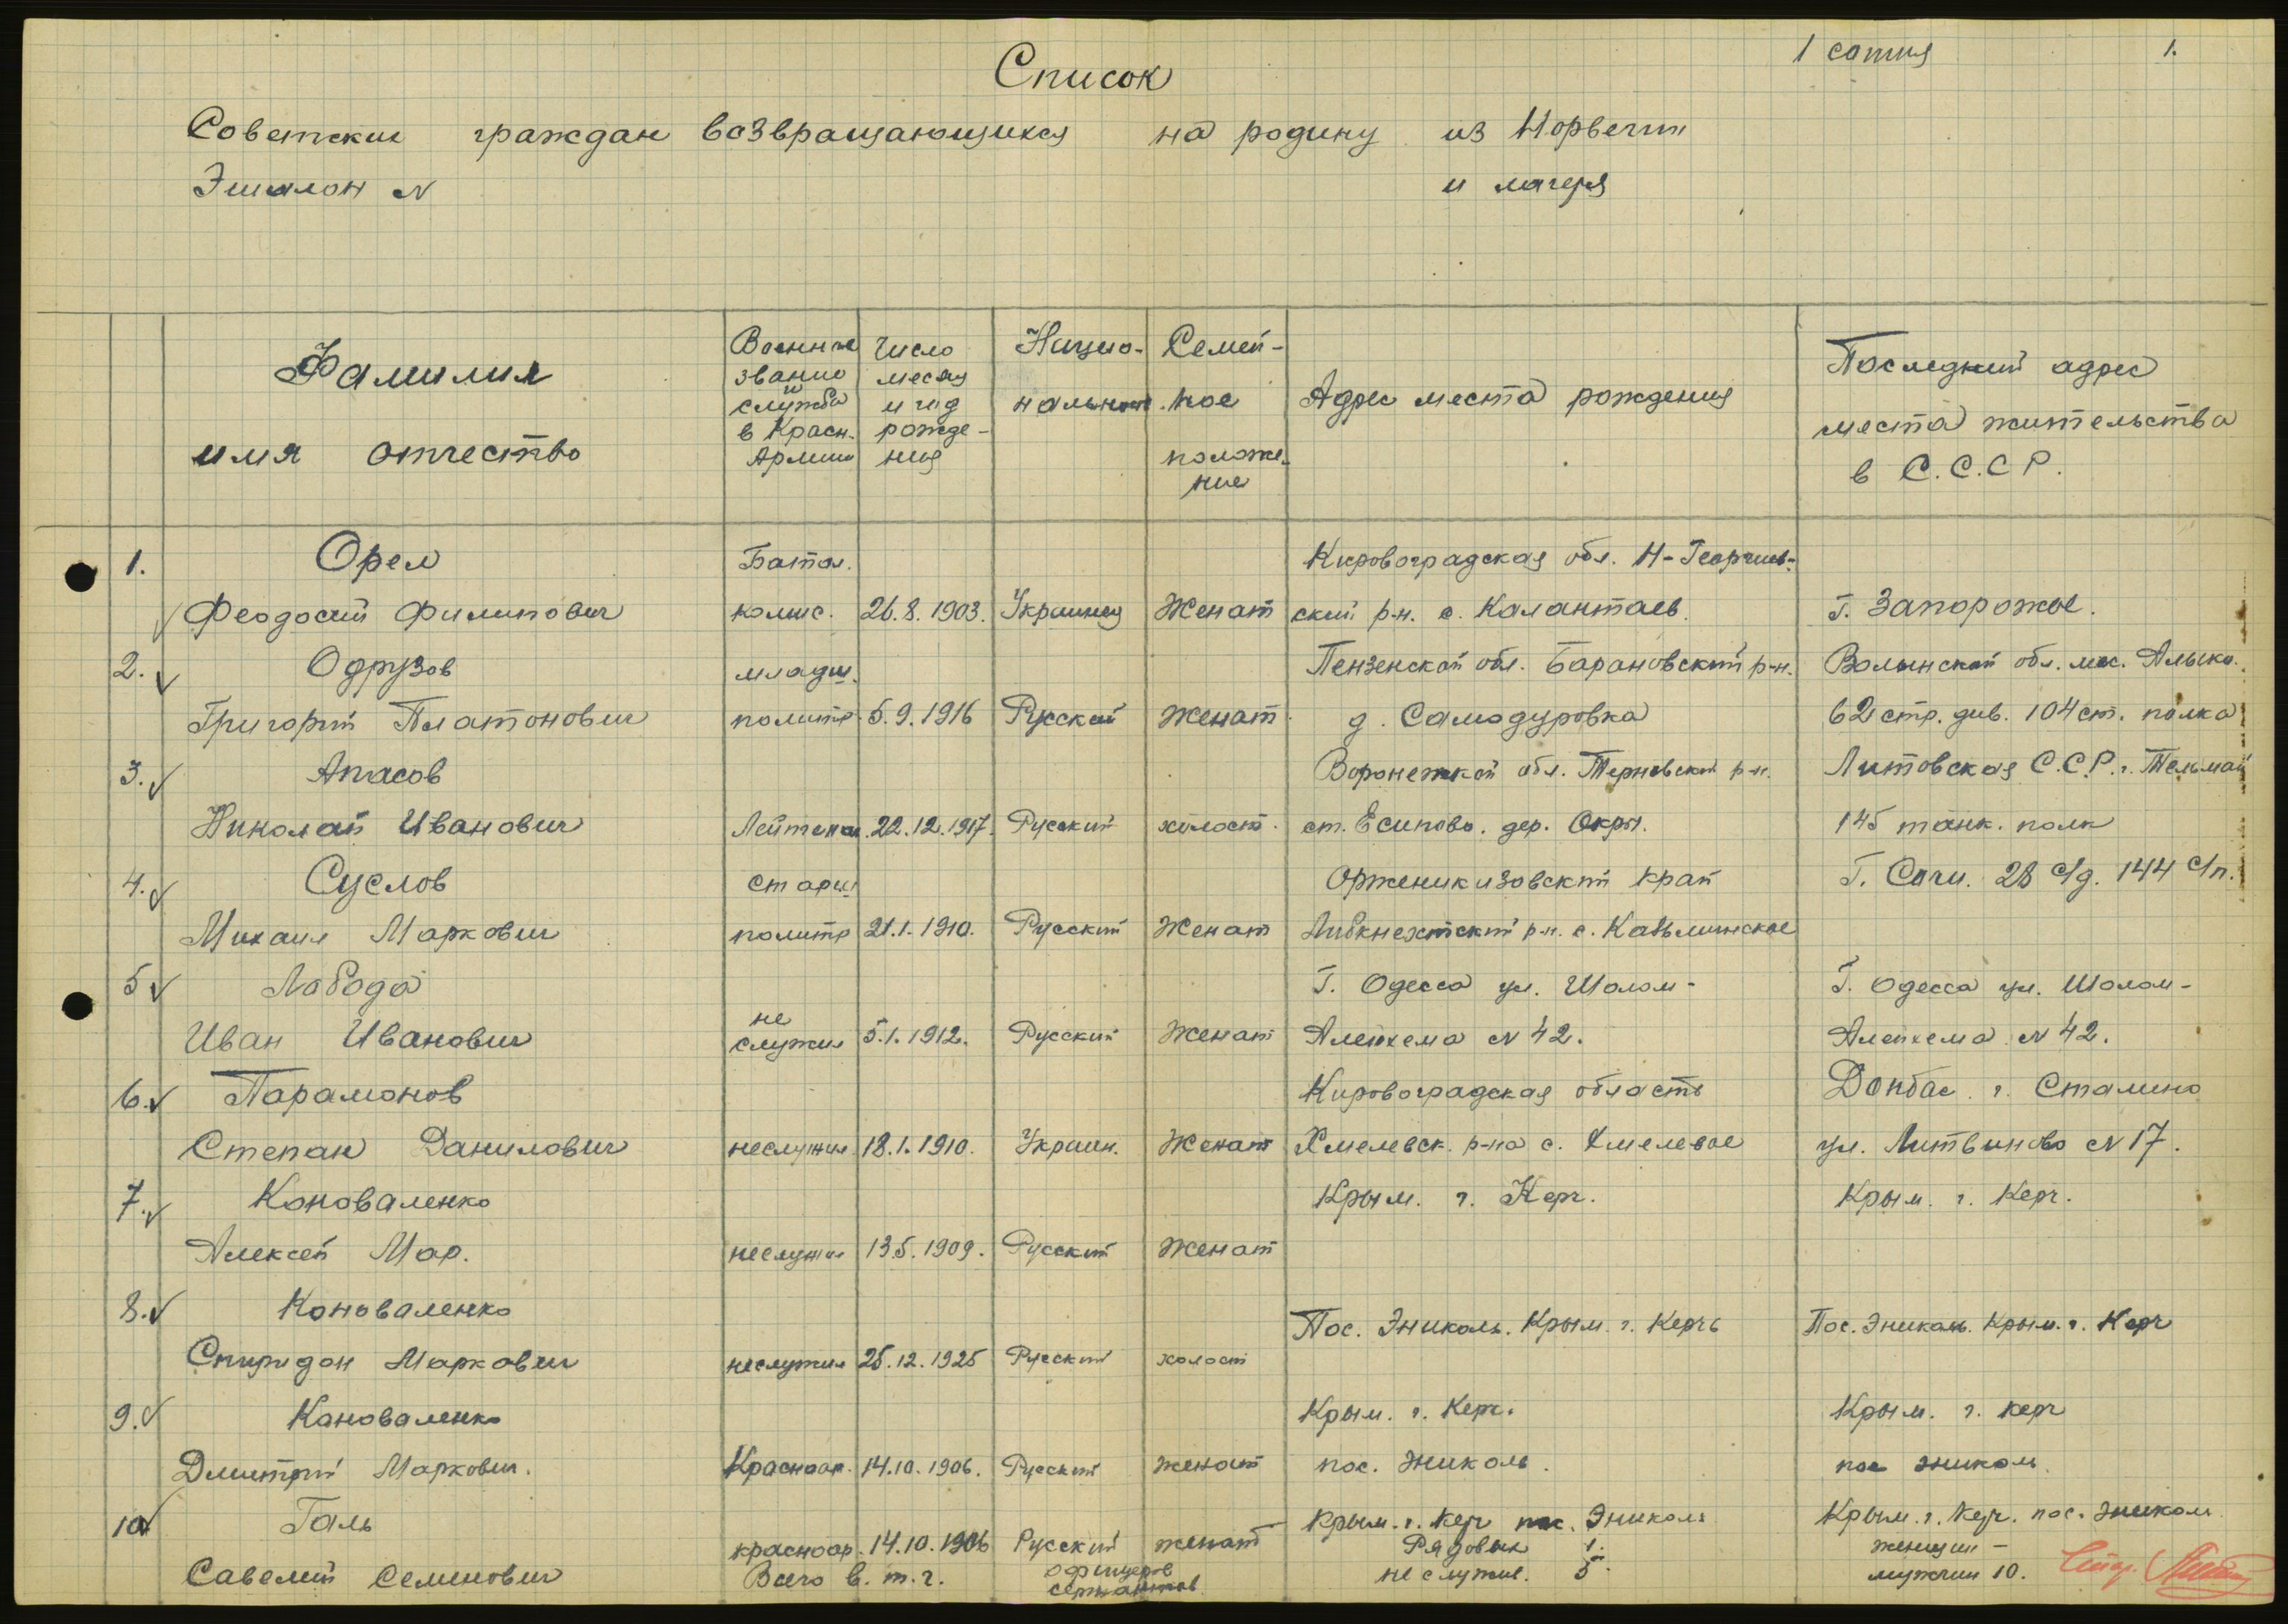 1 сотня 1.
Список
Советских граждан возвращающихся на родину из Норвегии
Эшалон N и лагеря
Фамилия
имя отчество
Военные
звание
и
служба
в Красн.
Армии
Число
месяц
и год
рожде-
ния
Нацио-
нальность
Семей-
ное
положе-
ние
Адрес места рождения
Последний адрес
места жительства
в С.С.С.Р.
1. Орел Батал. Кировоградская обл. Н-Георгиев-
Феодосий Филипович комис. 26.8.1903. Украинец Женат ский р-н. с. Калантаев. Г. Запорожье.
2. Одрузов младш. Пензенской обл. Барановский р-н. Волынской обл. мес. Алыка.
Григорий Платонович политр. 5.9.1916 Русский Женат. д. Самодуровка 62 стр. див. 104 ст. полка
3. Апасов Воронежкой обл. Терновский р-н. Литовская С.С.Р. г. Тельмай
Николай Иванович Лейтенан. 22.12.1917. Русский холост. ст. Есипово. дер. Окры. 145 танк. полк
4. Суслов старш Орженикизовский край Г. Сочи. 28 с/д. 144 с/п.
Михаил Маркович политр 21.1.1910. Русский Женат Либкнехтский р-н. с. Г. Одесса ул. Шолом-
5 Лобода Г. Одесса ул. Шолом-
Иван Иванович не служил 5.1.1912. Русский Женат Алейхема N 42. Алейхема N 42.
6. Парамонов Кировоградская область Донбас. г. Сталино
Степан Данилович неслужил 18.1.1910. Украин. Женат Хмелевск. р-на с. Хмелевое ул. Литвиново N 17.
7. Коноваленко Крым. г. Керч. Крым. г. Керч.
Алексей Мар. неслужил 13.5.1909. Русский Женат
8. Коноваленко Пос. Эниколь. Крым. г. Керчь Пос. Эниколь. Крым. г. Керч
Спиридон Маркович неслужил 25.12.1925 Русский холост
9. Кановаленко Крым. г. Керч. Крым. г. керч
Дмитрий Маркович. Красноар. 14.10.1906. Русский женат пос. Эниколь. пос эниколь.
10 Галь Крым. г. Керч пос. Эниколь Крым. г. Керч. пос. Эниколь
красноар. 14.10.1906 Русский женат Рядовых 1. женщин -
Савелий Семенович Всего в. т. ч. офицеров не служив. 5. мужчин 10.
сержантов